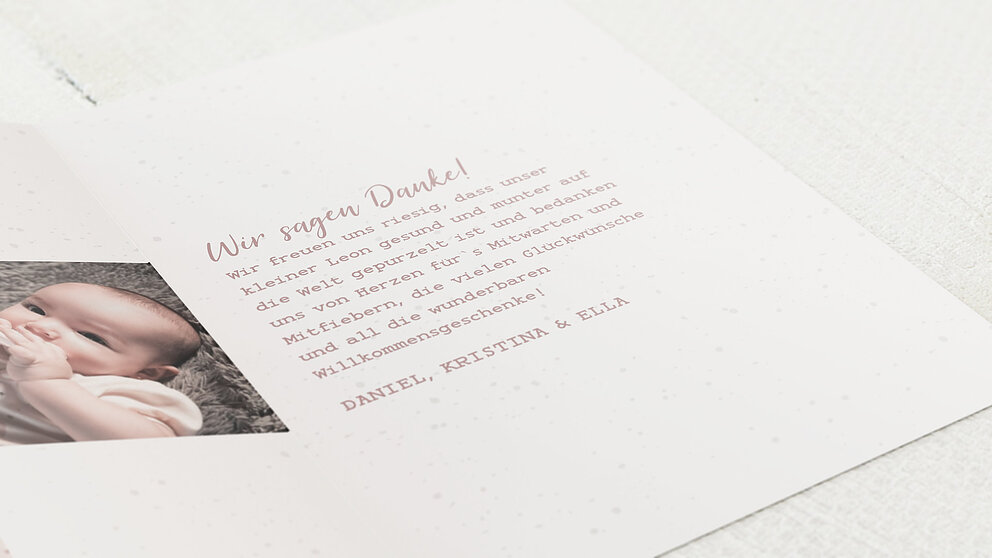 Wir sagen Danke!
Wir freuen uns riesig, dass unser
kleiner Leon gesund und munter auf
die Welt gepurzelt ist und bedanken
uns von Herzen für`s Mitwarten und
Mitfiebern, die vielen Glückwünsche
und all die wunderbaren
Willkommensgeschenke!
DANIEL, KRISTINA & ELLA